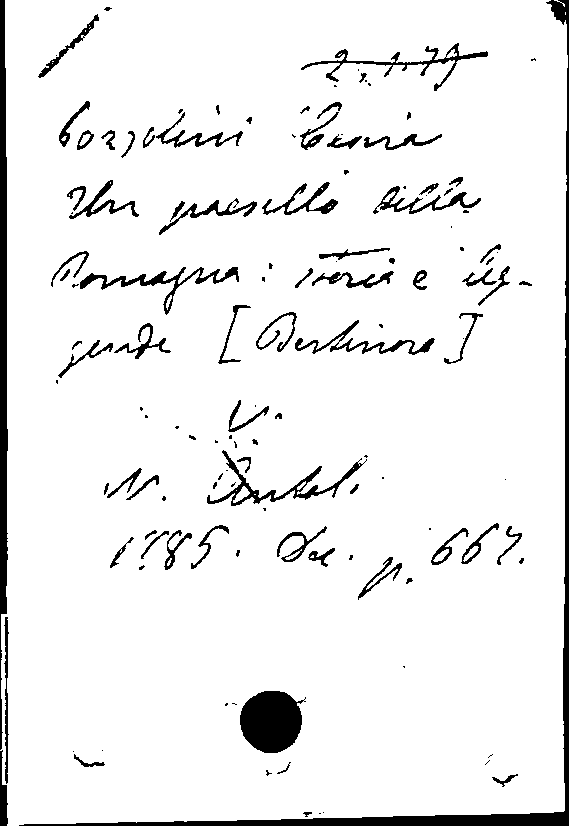 2.1.79
Bozzolini Cesira
Un paesello della
Romagna: storia e leg-
gende [Bertinoro]
V.
N. Antol.
1885. De. p. 667.